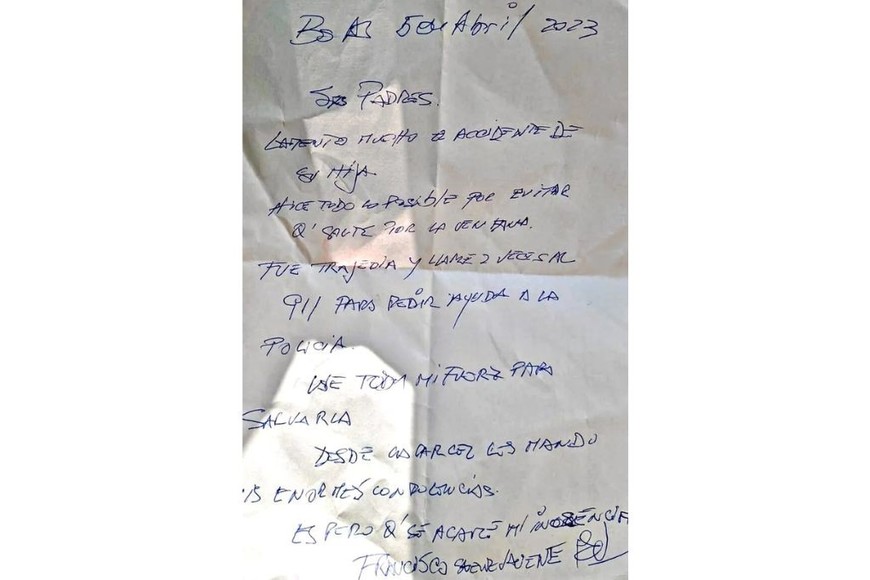 Bs As 5 de Abril 2023
Sres PADRES.
LAMENTO MUCHO EL ACCIDENTE DE
SU HIJA
HICE TODO LO POSIBLE POR EVITAR
Q' SALTE POR LA VENTANA.
FUE TRAJEDIA Y LLAME 2 VECES AL
911 PARA PEDIR AYUDA A LA
POLICIA.
USE TODA MI FUERZ PARA
SALVARLA
DESDE LA CARCEL LES MANDO
MIS ENORMES CONDOLENCIAS.
ESPERO Q' SE ACLARE MI INOSENCIA
FRANCISCO